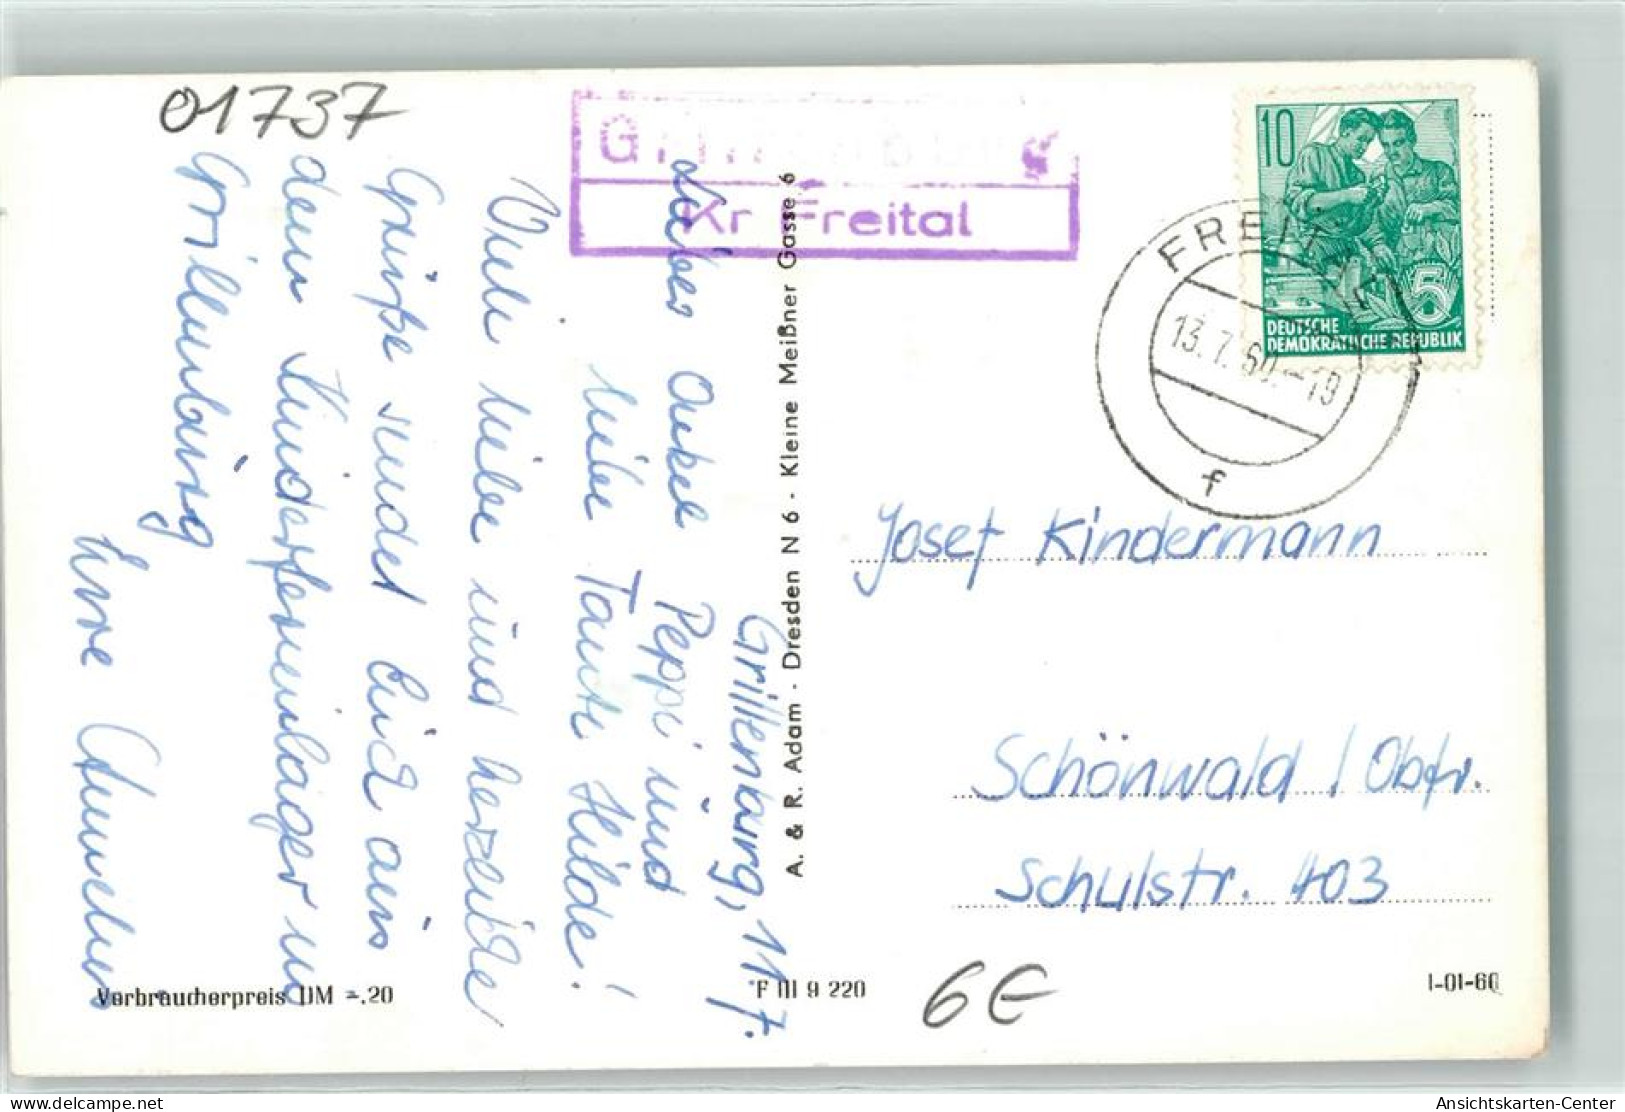 01737
Grillenburg
Kr Freital
10
5
DEUTSCHE
DEMOKRATISCHE REPUBLIK
FREITAL
13.7.60.-19
f
Grillenburg, 11.7.
Lieber Onkel Peppi und
liebe Tante Hilde!
Viele liebe und herzliche
Grüße sendet Euch aus
dem Kinderferienlager in
Grillenburg
Eure
A. & R. Adam · Dresden N 6 · Kleine Meißner Gasse 6
Josef Kindermann
Schönwald / Obfr.
Schulstr. 403
Verbraucherpreis DM -.20
F III 9 220
6€
I-01-60
oldthing.de
Ansichtskarten-Center